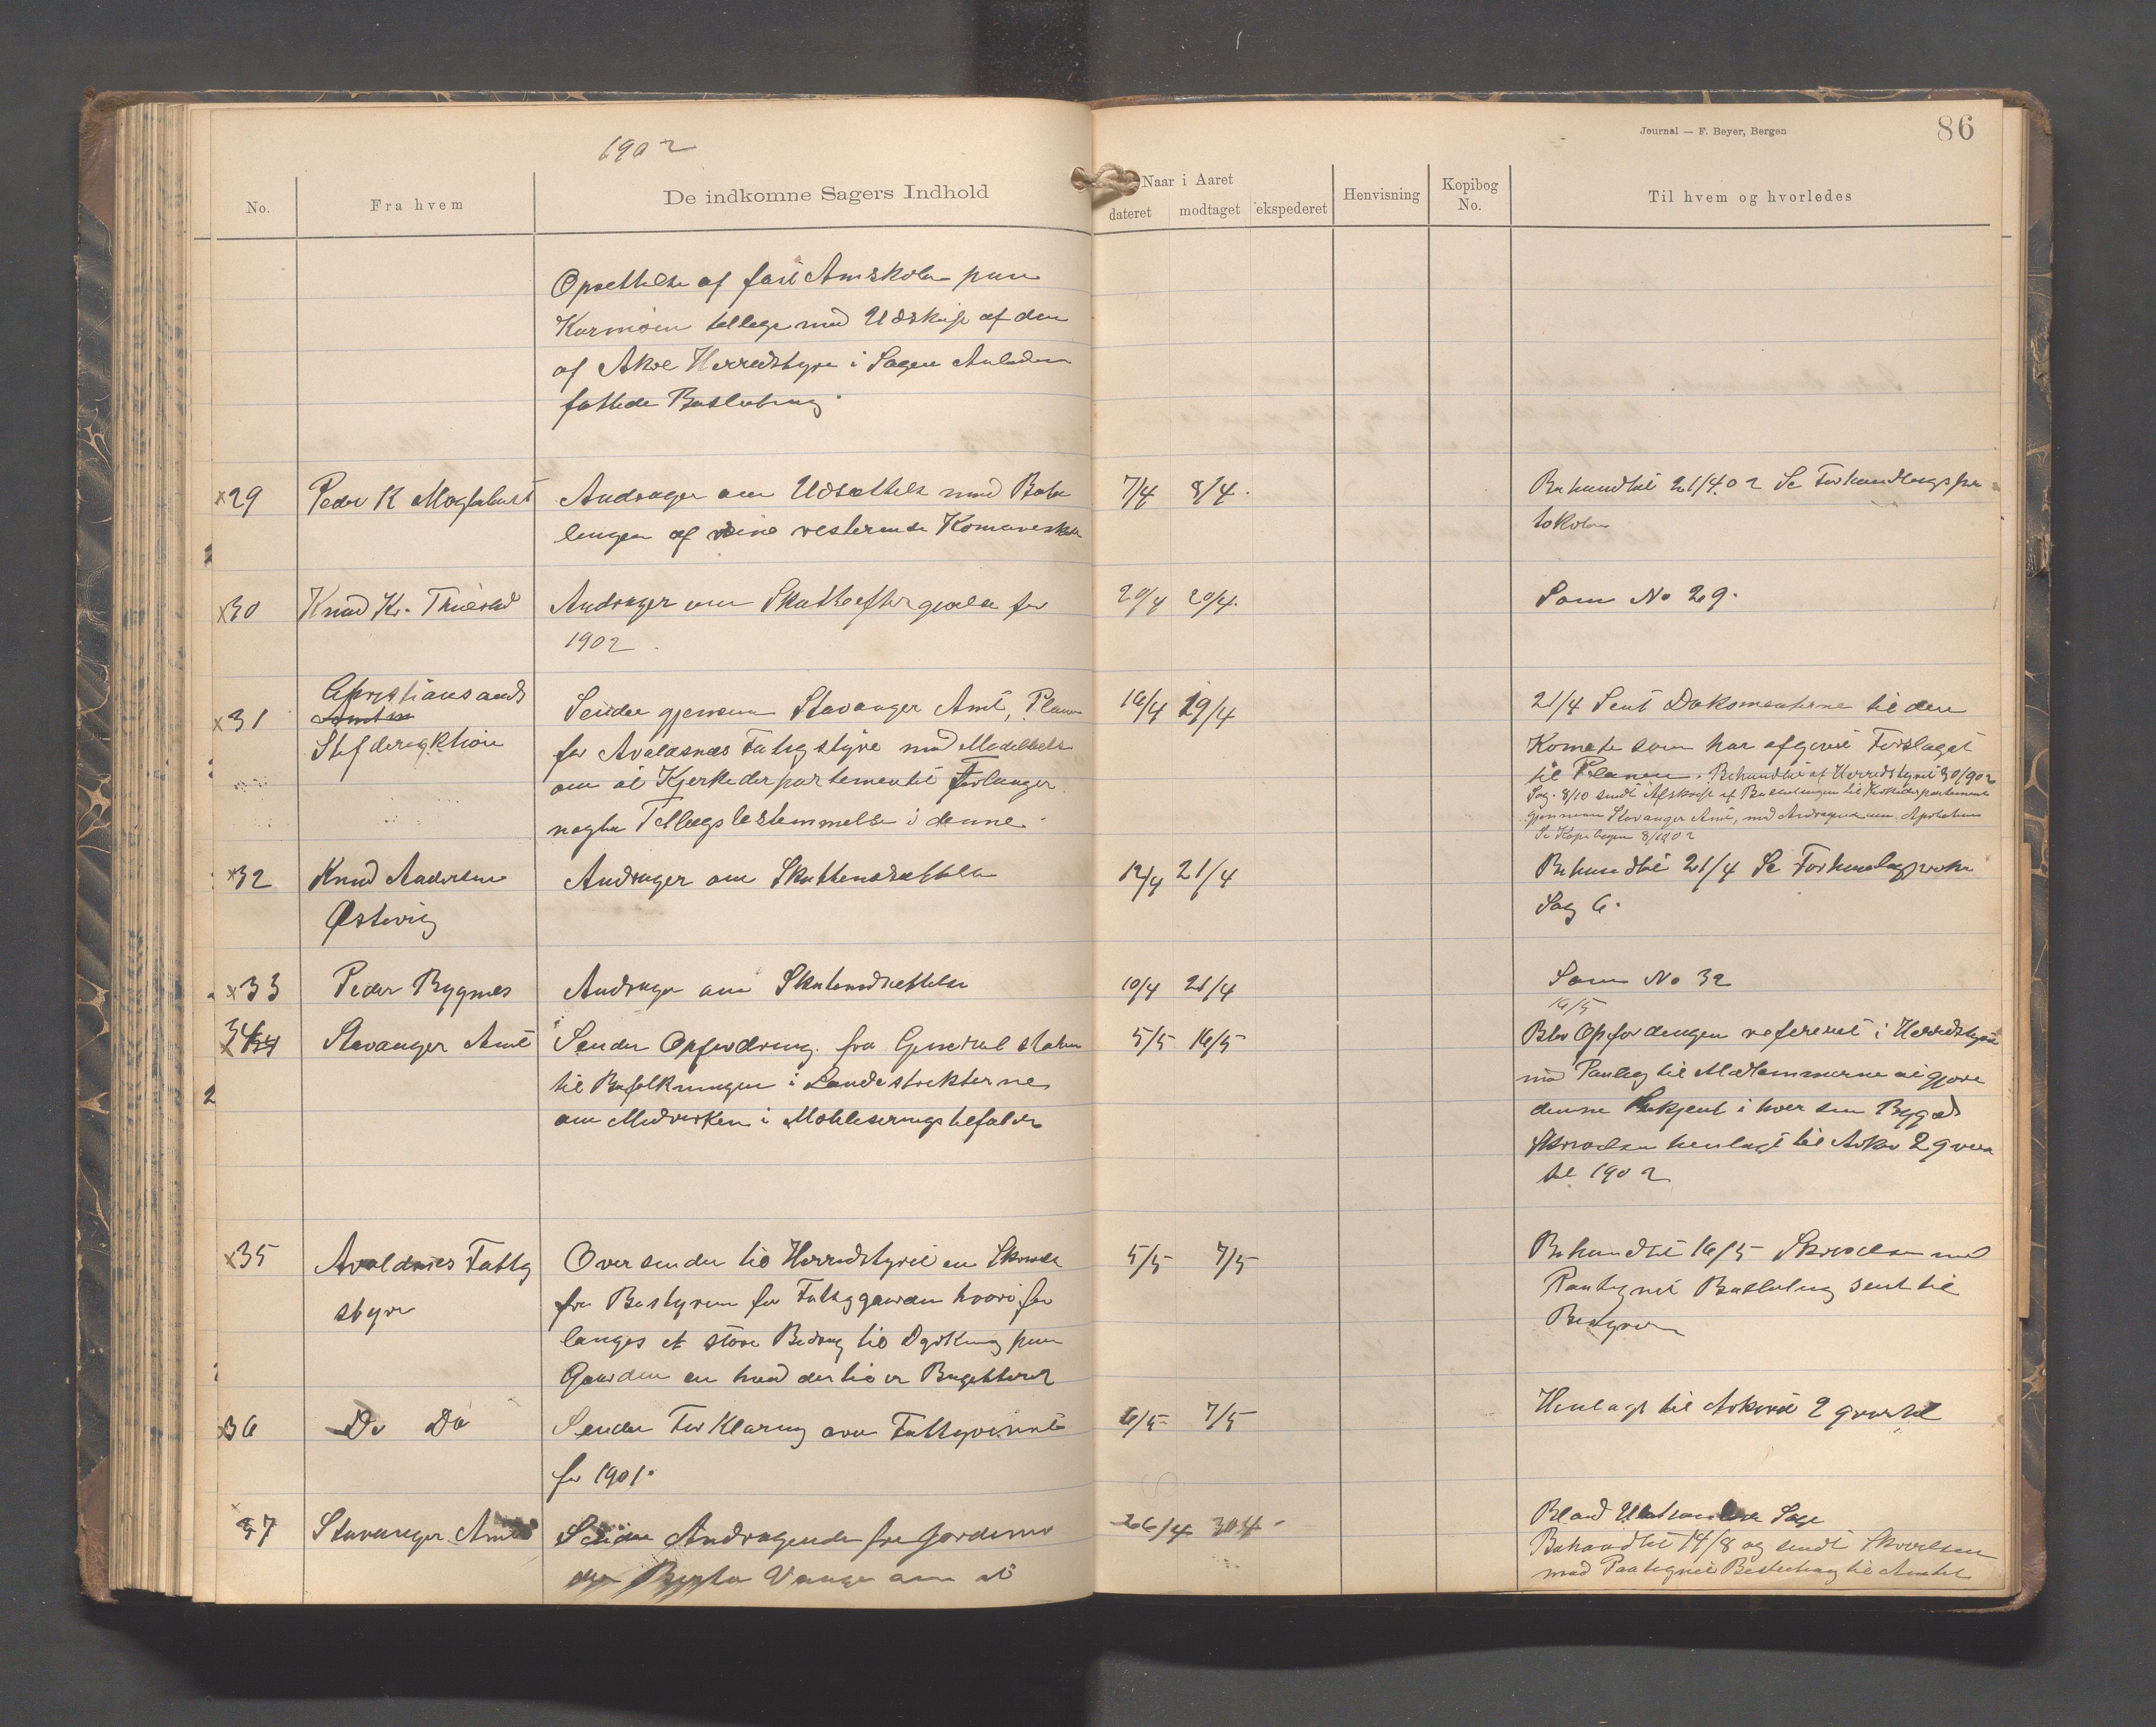 1902
Journal — F. Beyer, Bergen
86
No.
Fra hvem
De indkomne Sagers Indhold
Naar i Aaret
dateret
modtaget
ekspederet
Henvisning
Kopibog No.
Til hvem og hvorledes
Oprettelse af fast Amskole paa
Karmøen tellige med Udskrift af den
af Akre Herredstyre i Sagens Anledn
fattede Beslutning
x29 Peder K
Andrager om Udsættelse med Beta
lingen af sine resterende
7/4 8/4.
Behandlet 21/4 02 Se Forhandlingspro
tokolen
x30 Knud Kr.
Andrager om Skatteeftergivelse for
1902
20/4 20/4.
Som No 29.
x31 Christiansands
Stifdirektion
Sender gjennem Stavanger Amt, Planen
for Avaldsnæs Fatigstyre med Meddelelse
om at Kjerkedepartementet forlanger
nogle Tillægsbestemmelse i denne.
16/4 19/4
21/4 Sent Dokomenterne til den
Komite som har afgivet Forslaget
til Planen. Behandlet af Herredstyret 30/9 02
Sag. 8/10 sendt Afskrift af Beslutningen til Kirkedepartementet
gjennem Stavanger Amt, med Andragende om
Se Kopibogen 8/10 02
x32 Knud Andersen
Østevig
Andrager om
12/4 21/4
Behandlet 21/4 Se
Sag 6.
x33 Peder Bygnes
Andrager om
10/4 21/4
Som No 32
34 Stavanger Amt
Sender Opfordring fra Generalstaben
til Befolkningen i Landdistrikterne
om Medvirken i
5/5 16/5
16/5
Blev Opfordringen referert i Herredstyret
med Paalæg til Medlemmerne at gjøre
denne Bekjent i hver sin Bygd
Skrivelsen henlagt til Arkiv 2 qvar
tal 1902
x35 Avaldsnes Fattig
styre
Oversender til Herredstyret en Skrivelse
fra Bestyreren for Fattiggaarden hvori for
langes et større Bidrag til Dyrkning paa
Gaarden en hvad der til er Bugetteret
5/5 7/5
Behandlet 16/5 Skrivelsen med
Paategnet Beslutning sent til
Bestyreren
36 Do Do
Sender Forklaring over
for 1901.
6/5 7/5
Henlagt til Arkivet 2 qvartal
37 Stavanger Amt
Sender Andragende fra Jordemo
der Vange om at
26/4 30 4
Sage
Behandlet 14/8 og sendt Skrivelsen
med Paategnet Beslutning til Amtet